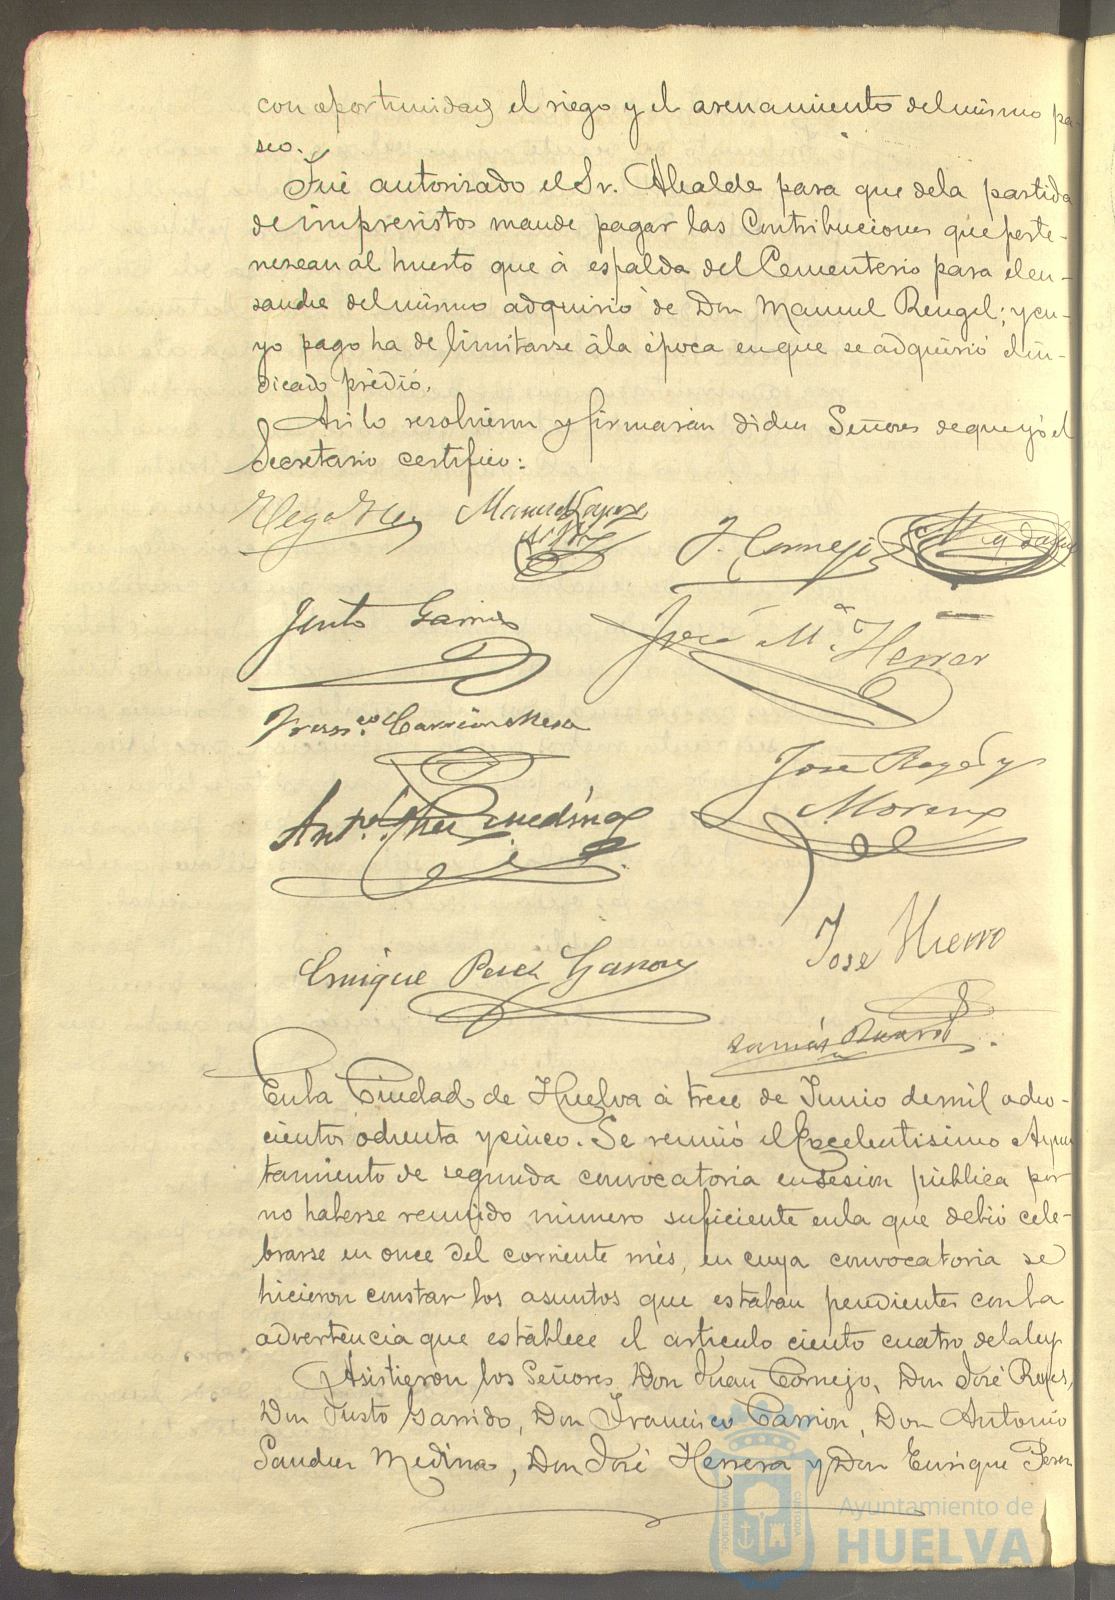 con oportunidad el riego y el arenamiento del mismo pa-
seo.
Fué autorizado el Sr. Alcalde para que dela partida
de imprevistos mande pagar las Contribuciones que perte-
nezcan al huerto que á espalda del Cementerio para el en-
sanche del mismo adquirió de Don Manuel Rengel; y cu-
yo pago ha de limitarse á la época en que se adquirió el in-
dicado prédio.
Asi lo resolvieron y firmarán dichos Señores de que yó el
Secretario certifico:
Manuel Lopez
J. Cornejo
Justo Garrido
José Mª Herrera
Franco. Carrión Mesa
José Reyes y
Moreno
Anto. Schez Medina
Enrique Perez
José Hierro
En la Ciudad de Huelva á trece de Junio de mil ocho-
cientos ochenta y cinco. Se reunió el Excelentisimo Ayun
tamiento de segunda convocatoria en Sesion pública por
no haberse reunido número suficiente en la que debió cele-
brarse en once del corriente més, en cuya convocatoria se
hicieron constar los asuntos que estaban pendientes con la
advertencia que establece el articulo ciento cuatro de la ley
Asistieron los Señores Don Juan Cornejo, Don José Reyes,
Don Justo Garrido, Don Francisco Carrion, Don Antonio
Sanchez Medina, Don José Herrera y Don Enrique Perez
Ayuntamiento de
HUELVA